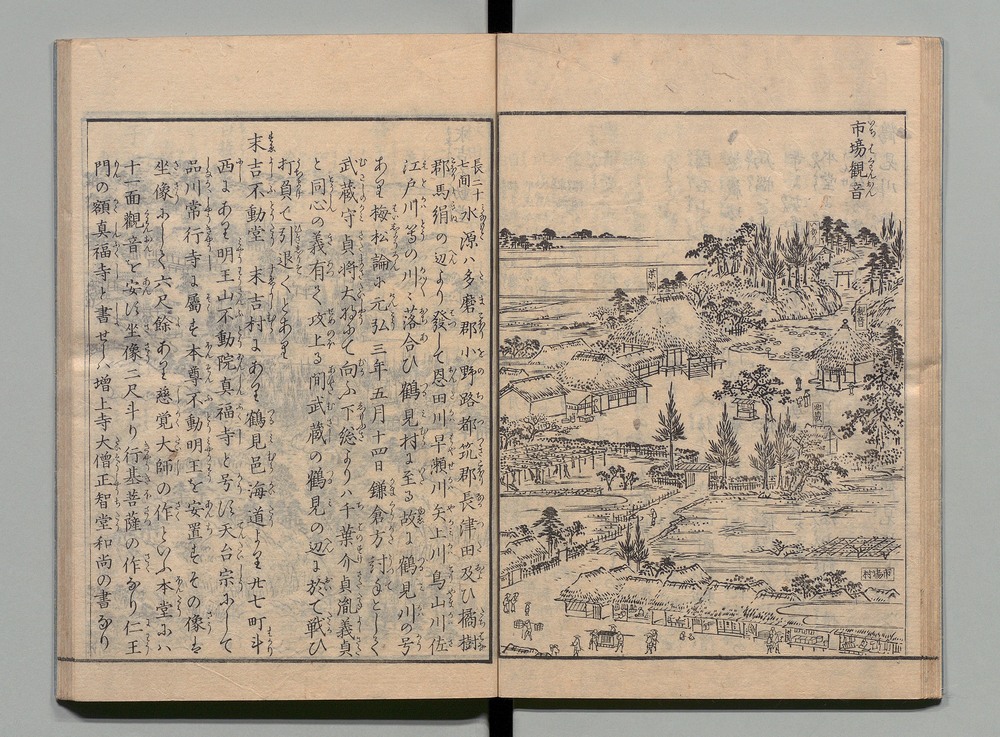 市場観音
茶師
観音
市場村
長二十七間
水源ハ多磨郡小野路都筑郡長津田及ひ橘樹
郡馬絹の辺より發して恩田川早瀬川矢上川鳥山川佐
江戸川等の川々落合ひ鶴見村に至る故に鶴見川の号
あり梅松論に元弘三年五月十四日鎌倉方討手として
武蔵守貞将大将にて向ふ下総よりハ千葉介貞胤義貞
と同心の義有て攻上る間武蔵の鶴見の辺に於て戦ひ
打負て引退くとあり
末吉不動堂 末吉村にあり鶴見邑海道より廿七町斗
西にあり明王山不動院真福寺と号す天台宗にして
品川常行寺に屬す本尊不動明王を安置すその像を
坐像にして六尺餘あり慈覚大師の作といふ本堂にハ
十一面觀音を安す坐像二尺斗り行基菩薩の作なり仁王
門の額真福寺ト書せしハ増上寺大僧正智堂和尚の書なり